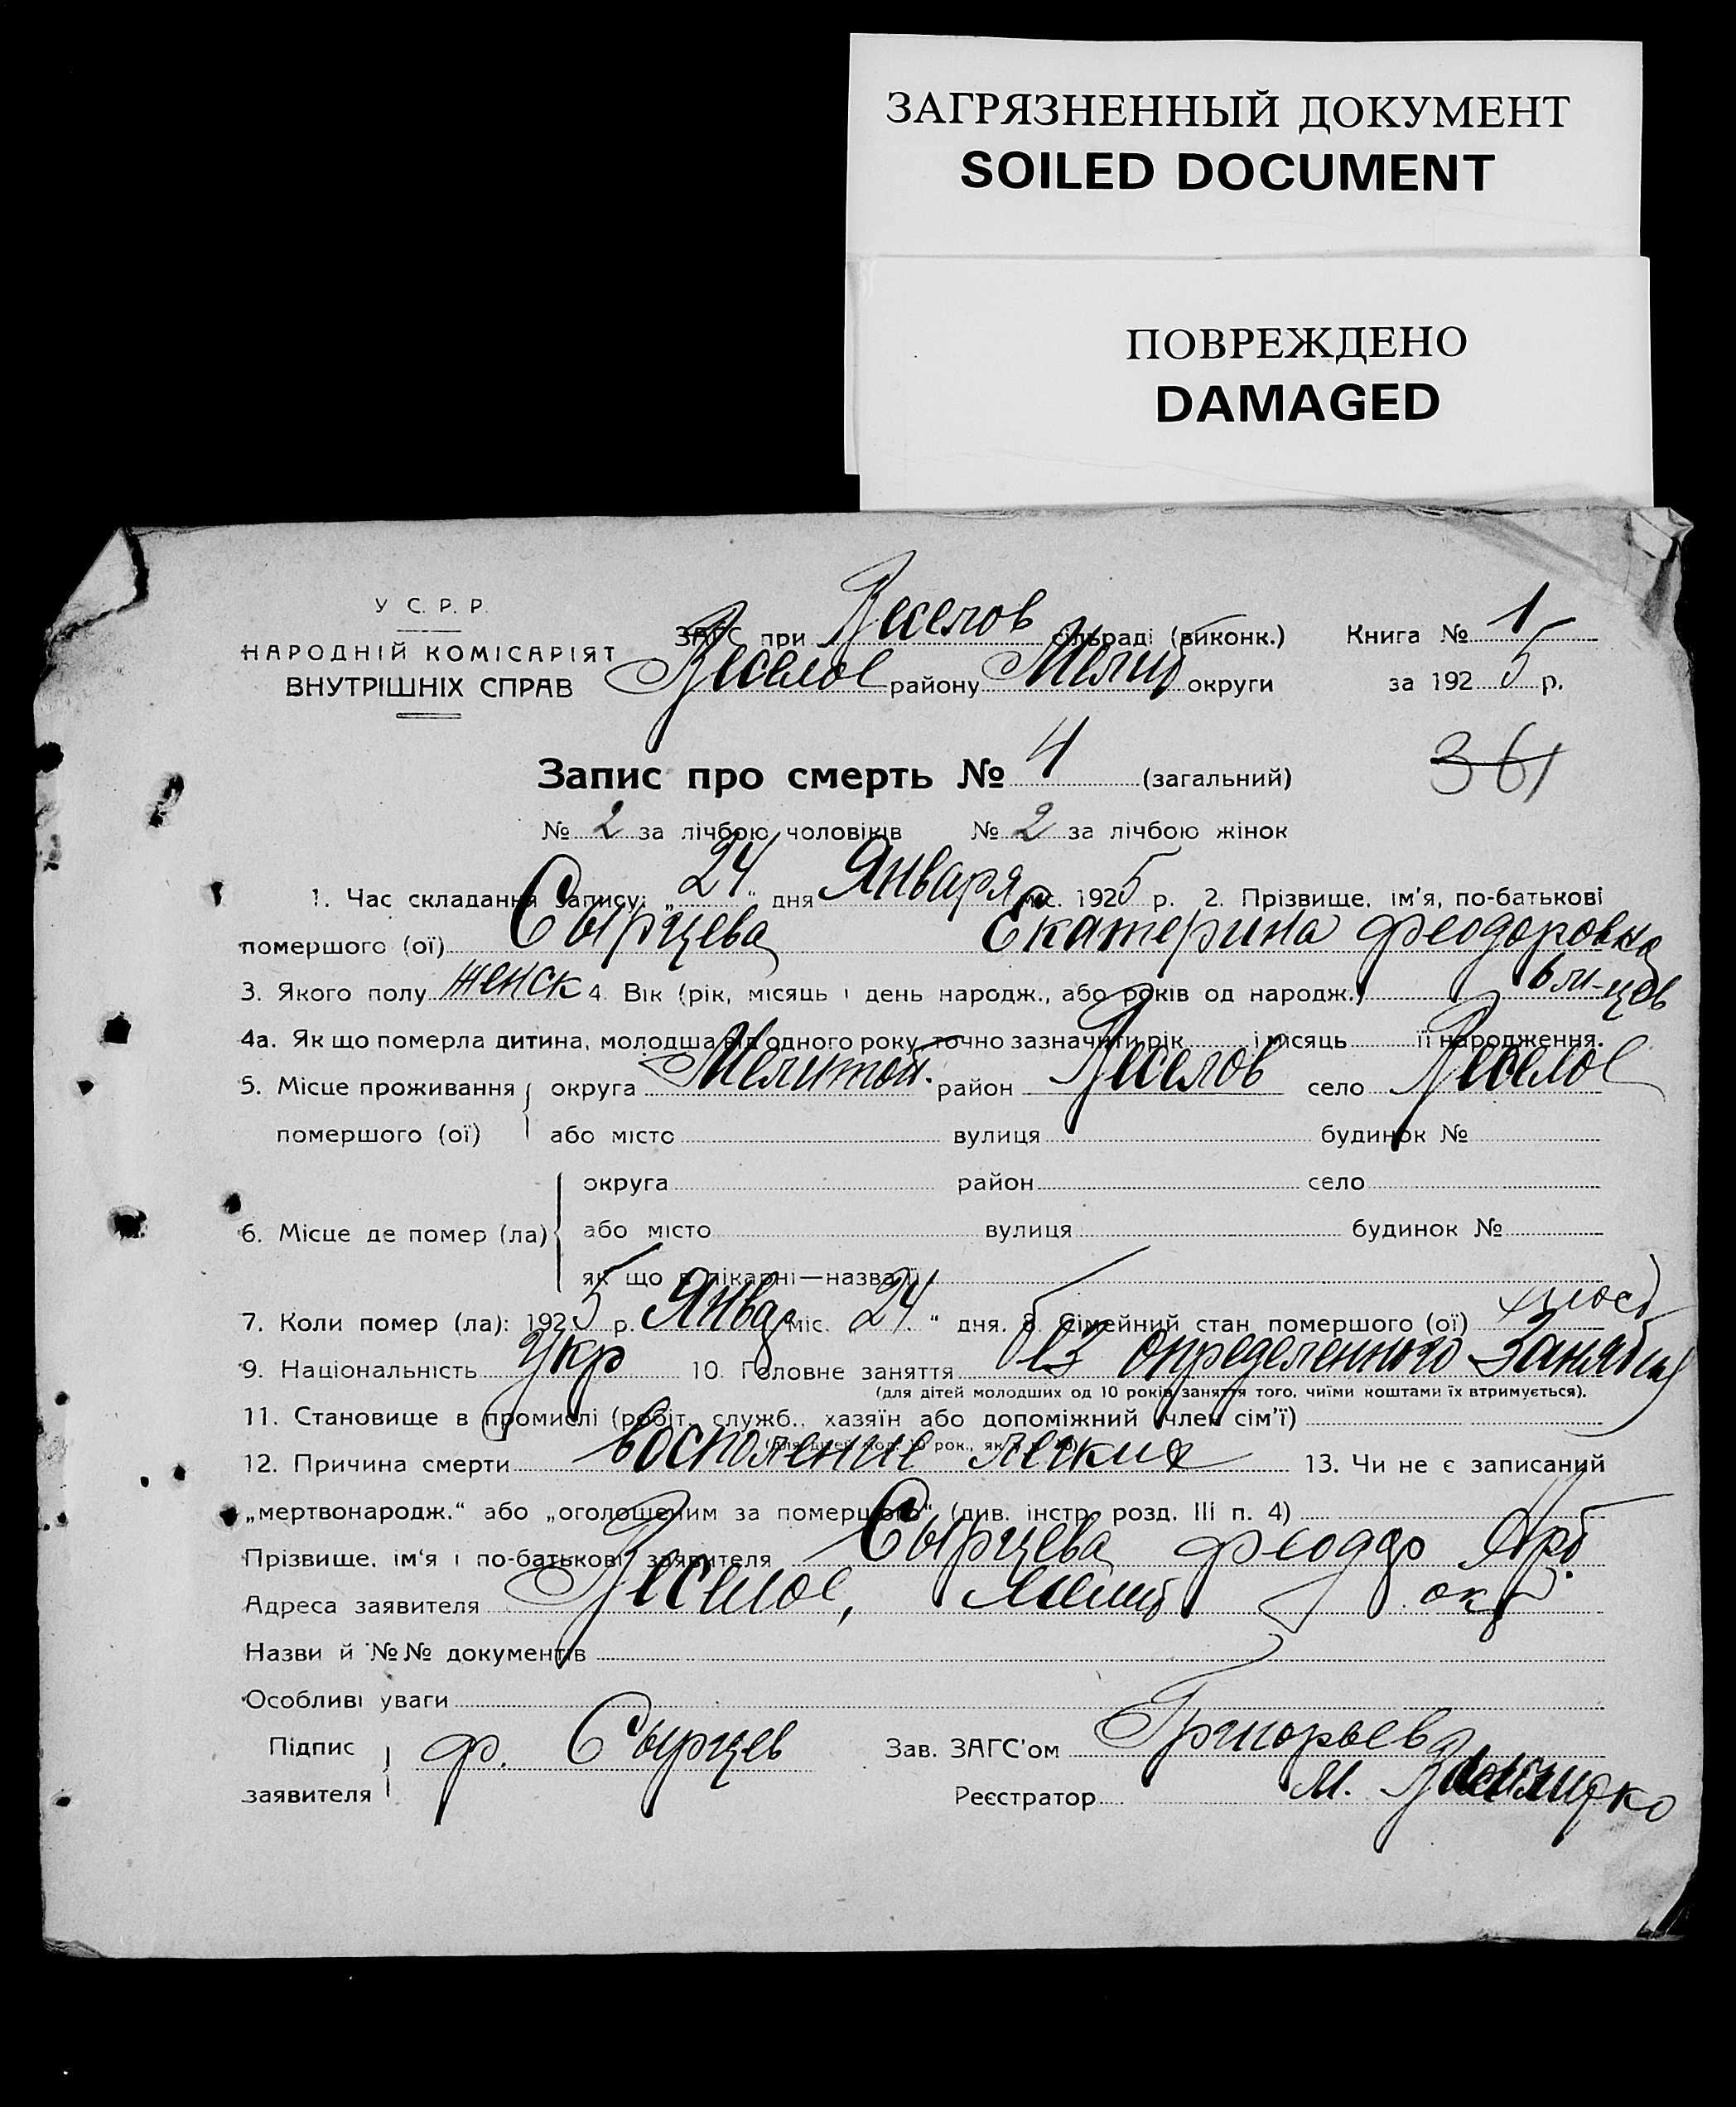 ЗАГРЯЗНЕННЫЙ ДОКУМЕНТ
SOILED DOCUMENT
ПОВРЕЖДЕНО
DAMAGED
У С. Р. Р.
НАРОДНІЙ КОМІСАРІЯТ
ВНУТРІШНІХ СПРАВ
ЗАГС при Веселов сільраді (виконк.) Книга № 1
Веселое району Мелит округи за 1925 р.
Запис про смерть № 4 (загальний) 361
№ 2 за лічбою чоловіків № 2 за лічбою жінок
1. Час складання запису: „24“ дня Января міс. 1925 р. 2. Прізвище, ім'я, по-батькові
помершого (ої) Сырцева Екатерина Феодоровна
3. Якого полу женск 4. Вік (рік, місяць і день народж., або років од народж.) 6 м-цев
4а. Як що померла дитина, молодша від одного року, точно зазначити рік і місяць її народження.
5. Місце проживання округа Мелитоп. район Веселов село Веселое
помершого (ої) або місто вулиця будинок №
округа район село
6. Місце де помер (ла) або місто вулиця будинок №
як що в лікарні—назва її
7. Коли помер (ла): 1925 р. Янва міс. „24“ дня. 8. Сімейний стан помершого (ої)
9. Національність Укр 10. Головне заняття определенного Занятия
(для дітей молодших од 10 років заняття того, чиїми коштами їх втримується).
11. Становище в промислі (робіт., служб., хазяїн або допоміжний член сім'ї)
12. Причина смерти восполение легких 13. Чи не є записаний
„мертвонародж.“ або „оголошеним за померлого“ (див. інстр. розд. III п. 4)
Прізвище, ім'я і по-батькові заявителя Сырцева Феоддо
Адреса заявителя Веселое, Мелит окр
Назви й №№ документів
Особливі уваги
Підпис заявителя Ф. Сырцев Зав. ЗАГС'ом Григорьев
Реєстратор М.